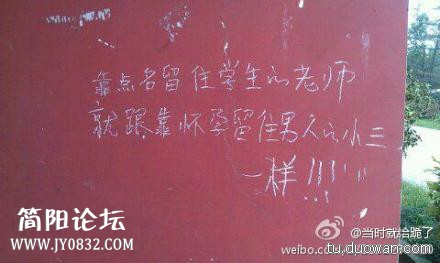 靠点名留住学生的老师
就跟靠怀孕留住男人的小三
一样!!!
简阳论坛
www.JY0832.com
@当时就给跪了
weibo.c
tu.duowan.com